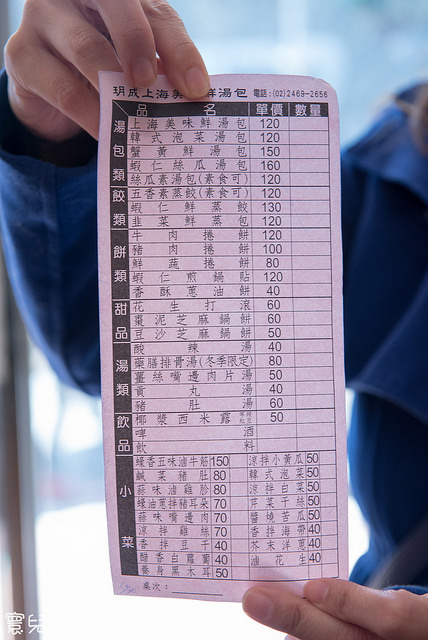 玥成上海美 鮮湯包 電話:(02)2469-2656
品名 單價 數量
湯包類
上海美味鮮湯包 120
韓式泡菜湯包 120
蟹黃鮮湯包 150
蝦仁絲瓜湯包 160
絲瓜素湯包(素食可) 120
餃類
五香素蒸餃(素食可) 120
蝦仁鮮蒸餃 130
韭菜鮮蒸包 120
餅類
牛肉捲餅 120
豬肉捲餅 100
鮮蔬捲餅 80
蝦仁煎鍋貼 120
香酥蔥油餅 40
甜品
花生打滾 60
棗泥芝麻鍋餅 60
豆沙芝麻鍋餅 50
湯類
酸辣湯 40
藥膳排骨湯(冬季限定) 80
薑絲嘴邊肉片湯 50
貢丸湯 40
豬肚湯 60
飲品
椰漿西米露 50
啤酒
飲料
小菜
蠔香五味滷牛筋 150 涼拌小黃瓜 50
鹹菜豬肚 80 韓式泡菜 50
蒜味滷雞胗 80 涼拌白菜 50
蠔油蔥拌豬耳朵 70 芹菜干絲 50
蒜味嘴邊肉 70 醬燒苦瓜 50
涼拌雞絲 70 香拌海帶 40
香拌豆干 40 芥末洋蔥 40
醋香白蘿蔔 40 油花生 40
養身黑木耳 50
桌次:
寰兒